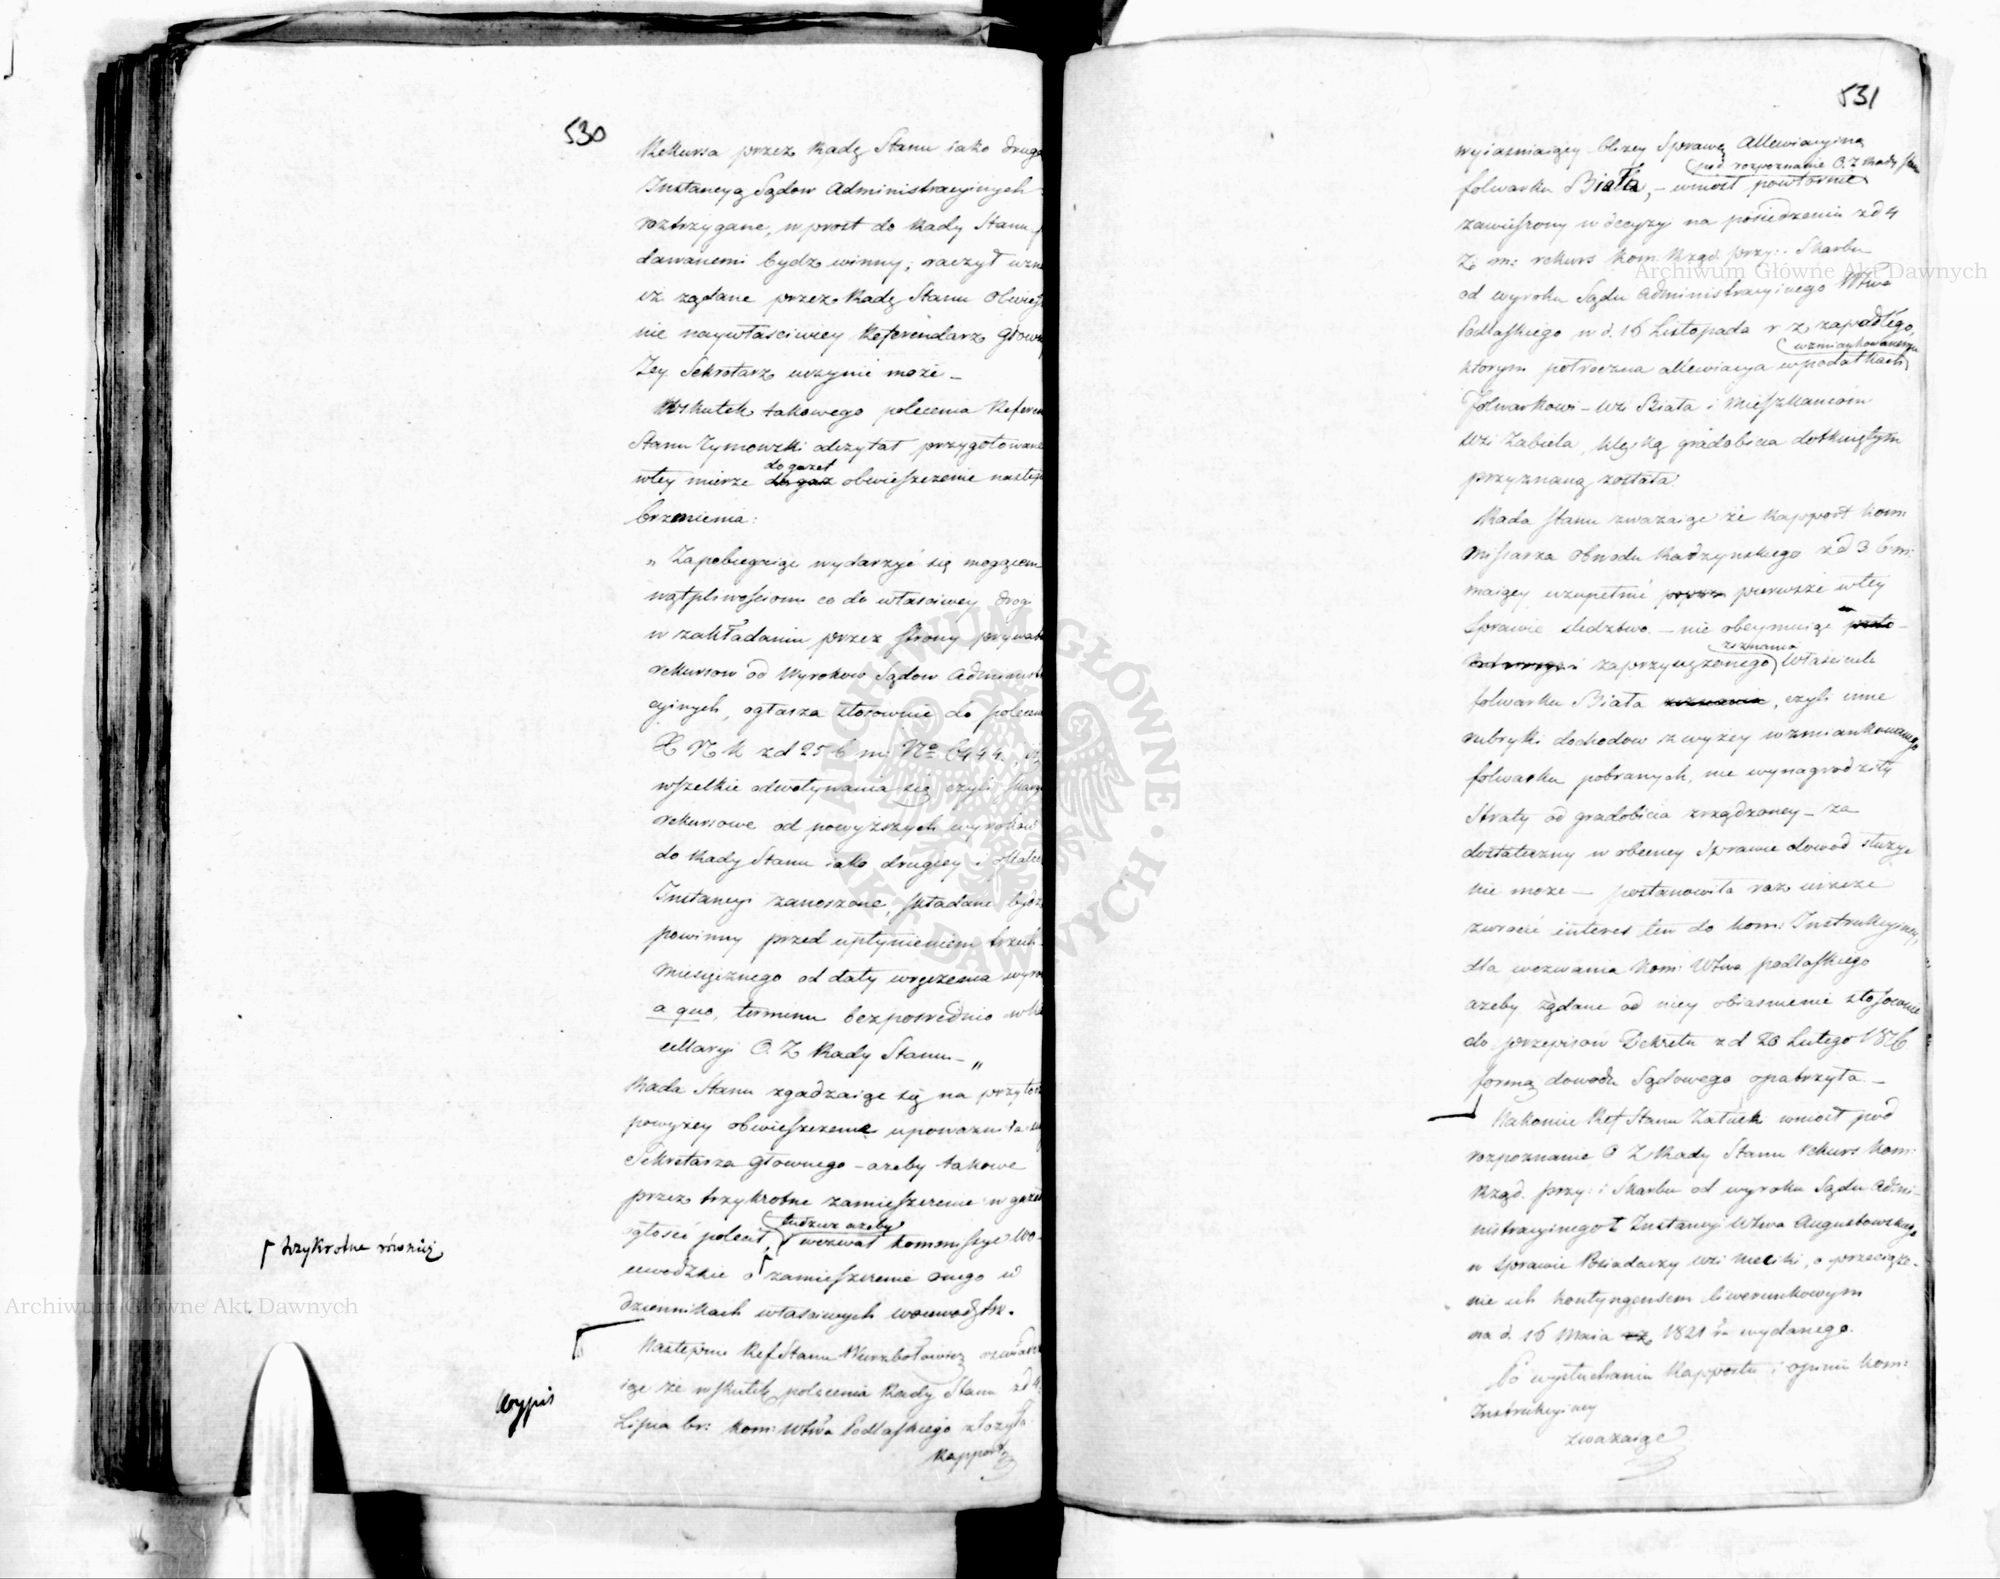 530
Rekursa przez Radę Stanu iako drugą
Instancyą Sądow Administracyinych
roztrzygane, wprost do Rady Stanu
dawanemi bydz winny; raczył
iż żądane przez Radę Stanu
nie naywłaściwiey Referendarz Głown
Zcy Sekretarz uczynić może –
Wskutek takowego polecenia
Stanu Tymowski odczytał przygotowane
wtey mierze do gazet obwieszczenie
brzmienia:
„ Zapobiegaiąc wydarzyć się mogącem
wątpliwościom co do właściwey drog
w zakładaniu przez strony prywat
rekursow od Wyrokow Sądow Administ
cyinych, ogłasza stosownie do
X N K z d 25 b m: No 6444.
wszelkie odwoływania się czyli skarg
rekursowe od powyższych wyrokow
do Rady Stanu iako drugiey i
Instancyi zanoszone, składane bydz
powinny przed upłynieniem trzech
miesięcznego od daty wręczenia wyro
a quo, terminu bezpośrednio w
cellaryi O. Z. Rady Stanu – „
Rada Stanu zgadzaiąc się na
powyżey obwieszczenie upoważniła
Sekretarza Głownego – ażeby takowe
przez trzykrotne zamieszczenie w
ogłosić polecił, tudzież ażeby wezwał Kommissye Wo-
iewodzkie o zamieszczenie onego w
ſ trzykrotne również
dziennikach właściwych woiewodztw.
Następnie Ref Stanu Wierzbołowicz
iąc że wskutek polecenia Rady Stanu z d 4
Wypis
Lipca br: Kom: Wtwa Podlaskiego złożyła
Rapport
531
wyiaśniaiący bliżey Sprawę Allewiacyiną
folwarku Biała, – wniost powtornie pod rozpoznanie O. Z. Rady Stanu
zawieszony w decyzyi na posiedzeniu z d 4
z. m: rekurs Kom: Rząd. przy: Skarbu
od wyroku Sądu Administracyinego Wtwa
Podlaskiego w d. 16 Listopada r z zapadłego,
ktorym połroczna allewiacya w podatkach wzmiankowanemu
Folwarkowi – wsi Biała i Mieszkańcom
wsi Zabiela, klęską gradobicia dotkniętym
przyznaną została
Rada Stanu zważaiąc że Rapport Kom:
missarza Obwodu Radzynskiego z d 3 b m:
maiący uzupełnić pierwsze wtey
Sprawie sledztwo – nie obeymuiąc
zaprzysiężonego zeznania Właściciela
folwarku Biała, czyli inne
rubryki dochodow z wyżey wzmiankowanego
folwarku pobranych, nie wynagrodziły
straty od gradobicia zrządzoney – za
dostateczny w obecney Sprawie dowod służyć
nie może – postanowiła raz ieszcze
zwrocić interes ten do Kom: Instrukcyiney,
dla wezwania Kom: Wtwa podlaskiego
ażeby żądane od niey obiaśnienie stosownie
do przepisow Dekretu z d 20 Lutego 1816
formą dowodu Sądowego opatrzyła –
Nakoniec Ref Stanu Załuski wniost pod
rozpoznanie O Z Rady Stanu rekurs Kom:
Rząd. przy: i Skarbu od wyroku Sądu Admi-
nistracyinego I Instancyi Wtwa Augustowskiego
w Sprawie Posiadaczy wsi Mecihi, o przeciąże-
nie ich Kontyngensem liwerunkowym
na d. 16 Maia 1821 r. wydanego.
Po wysłuchaniu Rapportu i opinii Kom:
Instrukcyiney
zważaiąc
Archiwum Główne Akt Dawnych
Archiwum Główne Akt Dawnych
ARCHIWUM GŁÓWNE AKT DAWNYCH